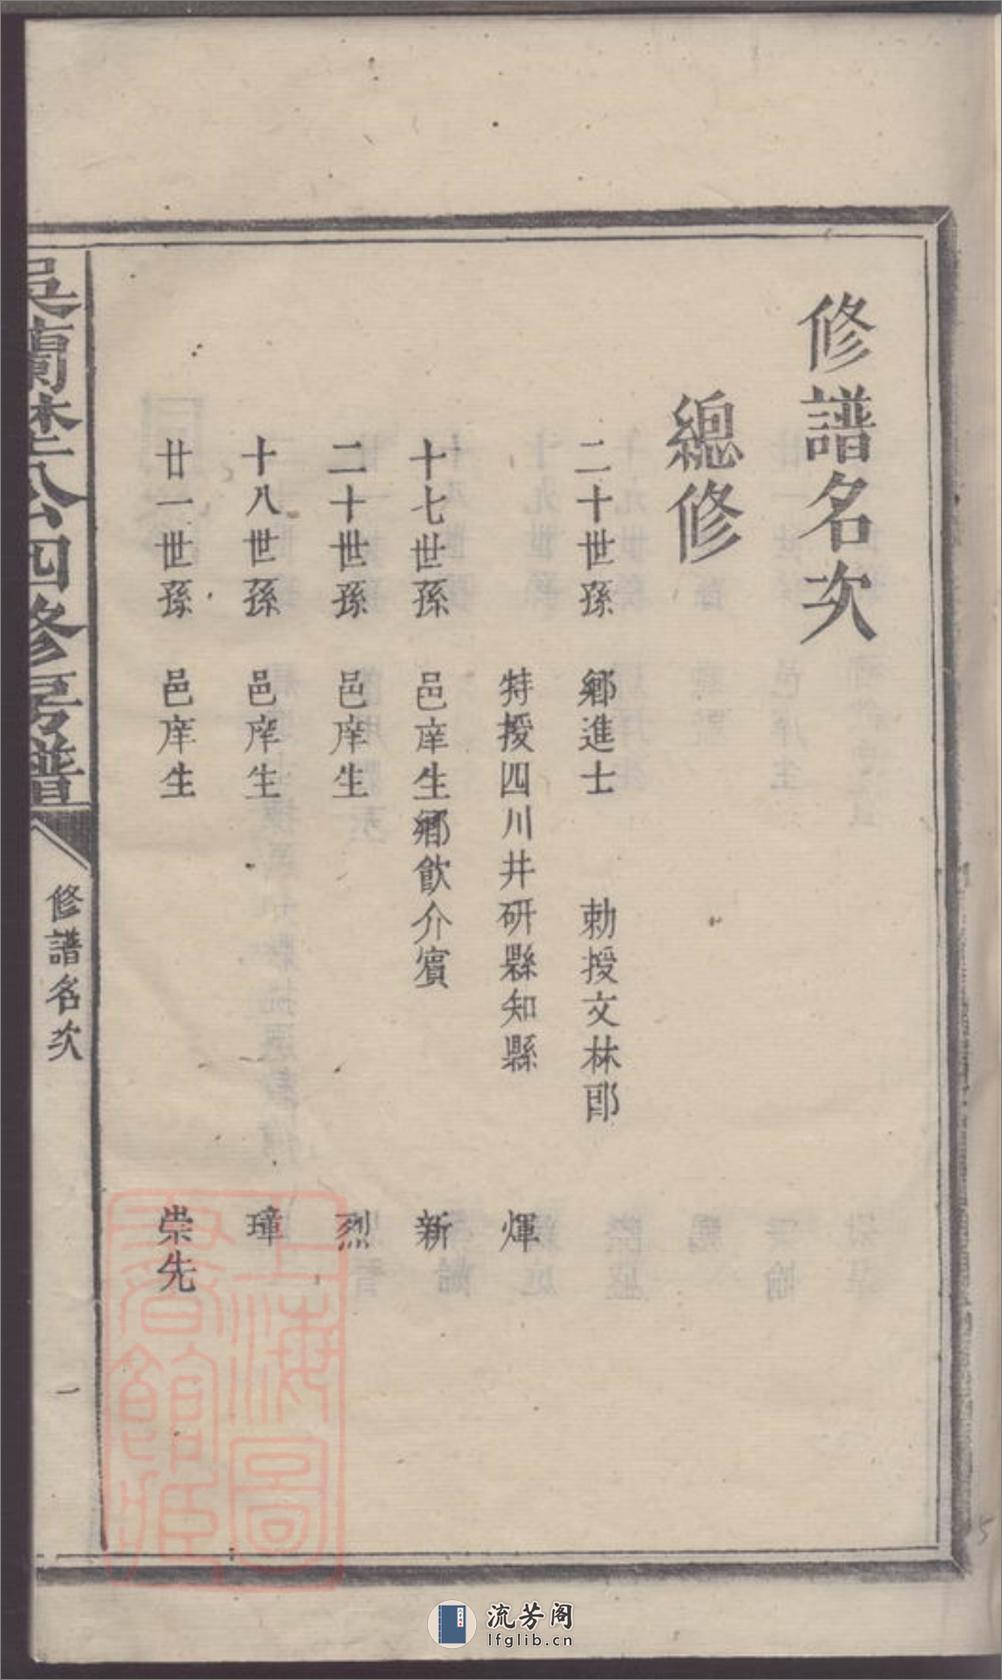 修譜名次
總修
二十世孫 鄉進士 勅授文林郎
特授四川井研縣知縣 煇
十七世孫 邑庠生鄉飲介賓 新
二十世孫 邑庠生 烈
十八世孫 邑庠生 璋
廿一世孫 邑庠生 崇先
吳蘭埜公四修房譜
修譜名次
一
上海圖書館藏
流芳阁
lfglib.cn